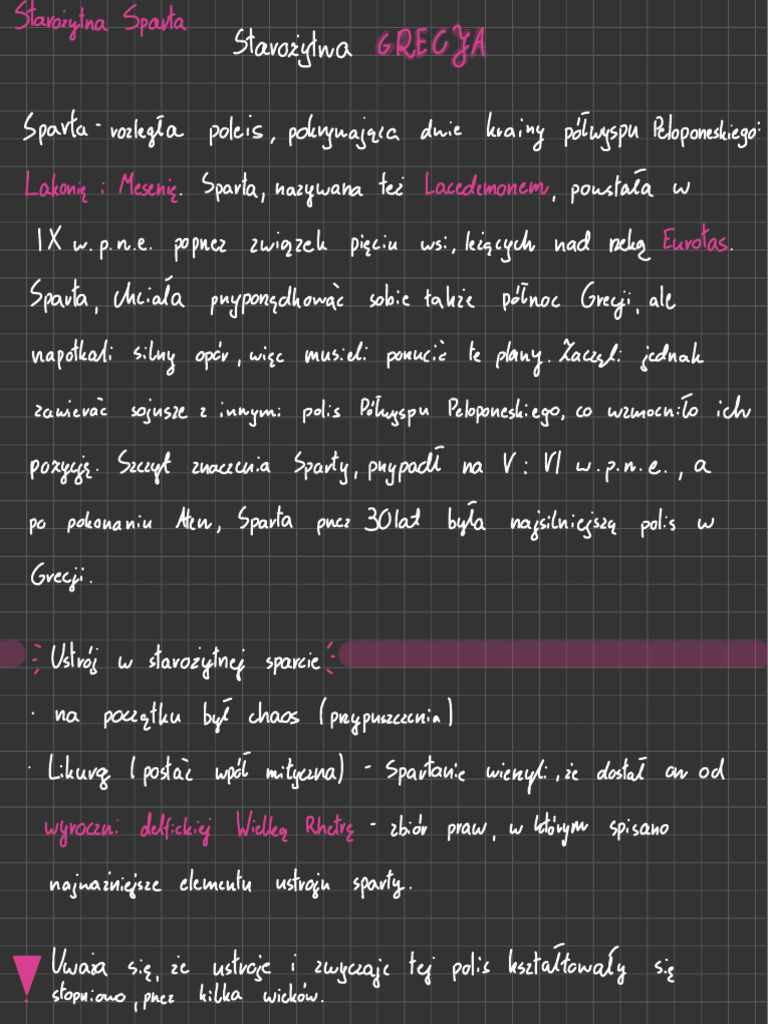 Starożytna Sparta
Starożytna GRECJA
Sparta - rozległa poleis, pokrywająca dwie krainy półwyspu Peloponeskiego:
Lakonię i Mesenię. Sparta, nazywana też Lacedemonem, powstała w
IX w.p.n.e. poprzez związek pięciu wsi, leżących nad rzeką Eurotas.
Sparta, chciała przyporządkować sobie także północ Grecji, ale
napotkali silny opór, więc musieli porzucić te plany. Zaczęli jednak
zawierać sojusze z innymi polis Półwyspu Peloponeskiego, co wzmocniło ich
pozycję. Szczyt znaczenia Sparty, przypadł na V i VI w.p.n.e., a
po pokonaniu Aten, Sparta przez 30 lat była najsilniejszą polis w
Grecji.
Ustrój w starożytnej sparcie
· na początku był chaos (przypuszczenia)
· Likurg (postać wpół mityczna) - Spartanie wierzyli, że dostał on od
wyroczni delfickiej Wielką Rhetrę - zbiór praw, w którym spisano
najważniejsze elementu ustroju sparty.
Uważa się, że ustroje i zwyczaje tej polis kształtowały się
stopniowo, przez kilka wieków.